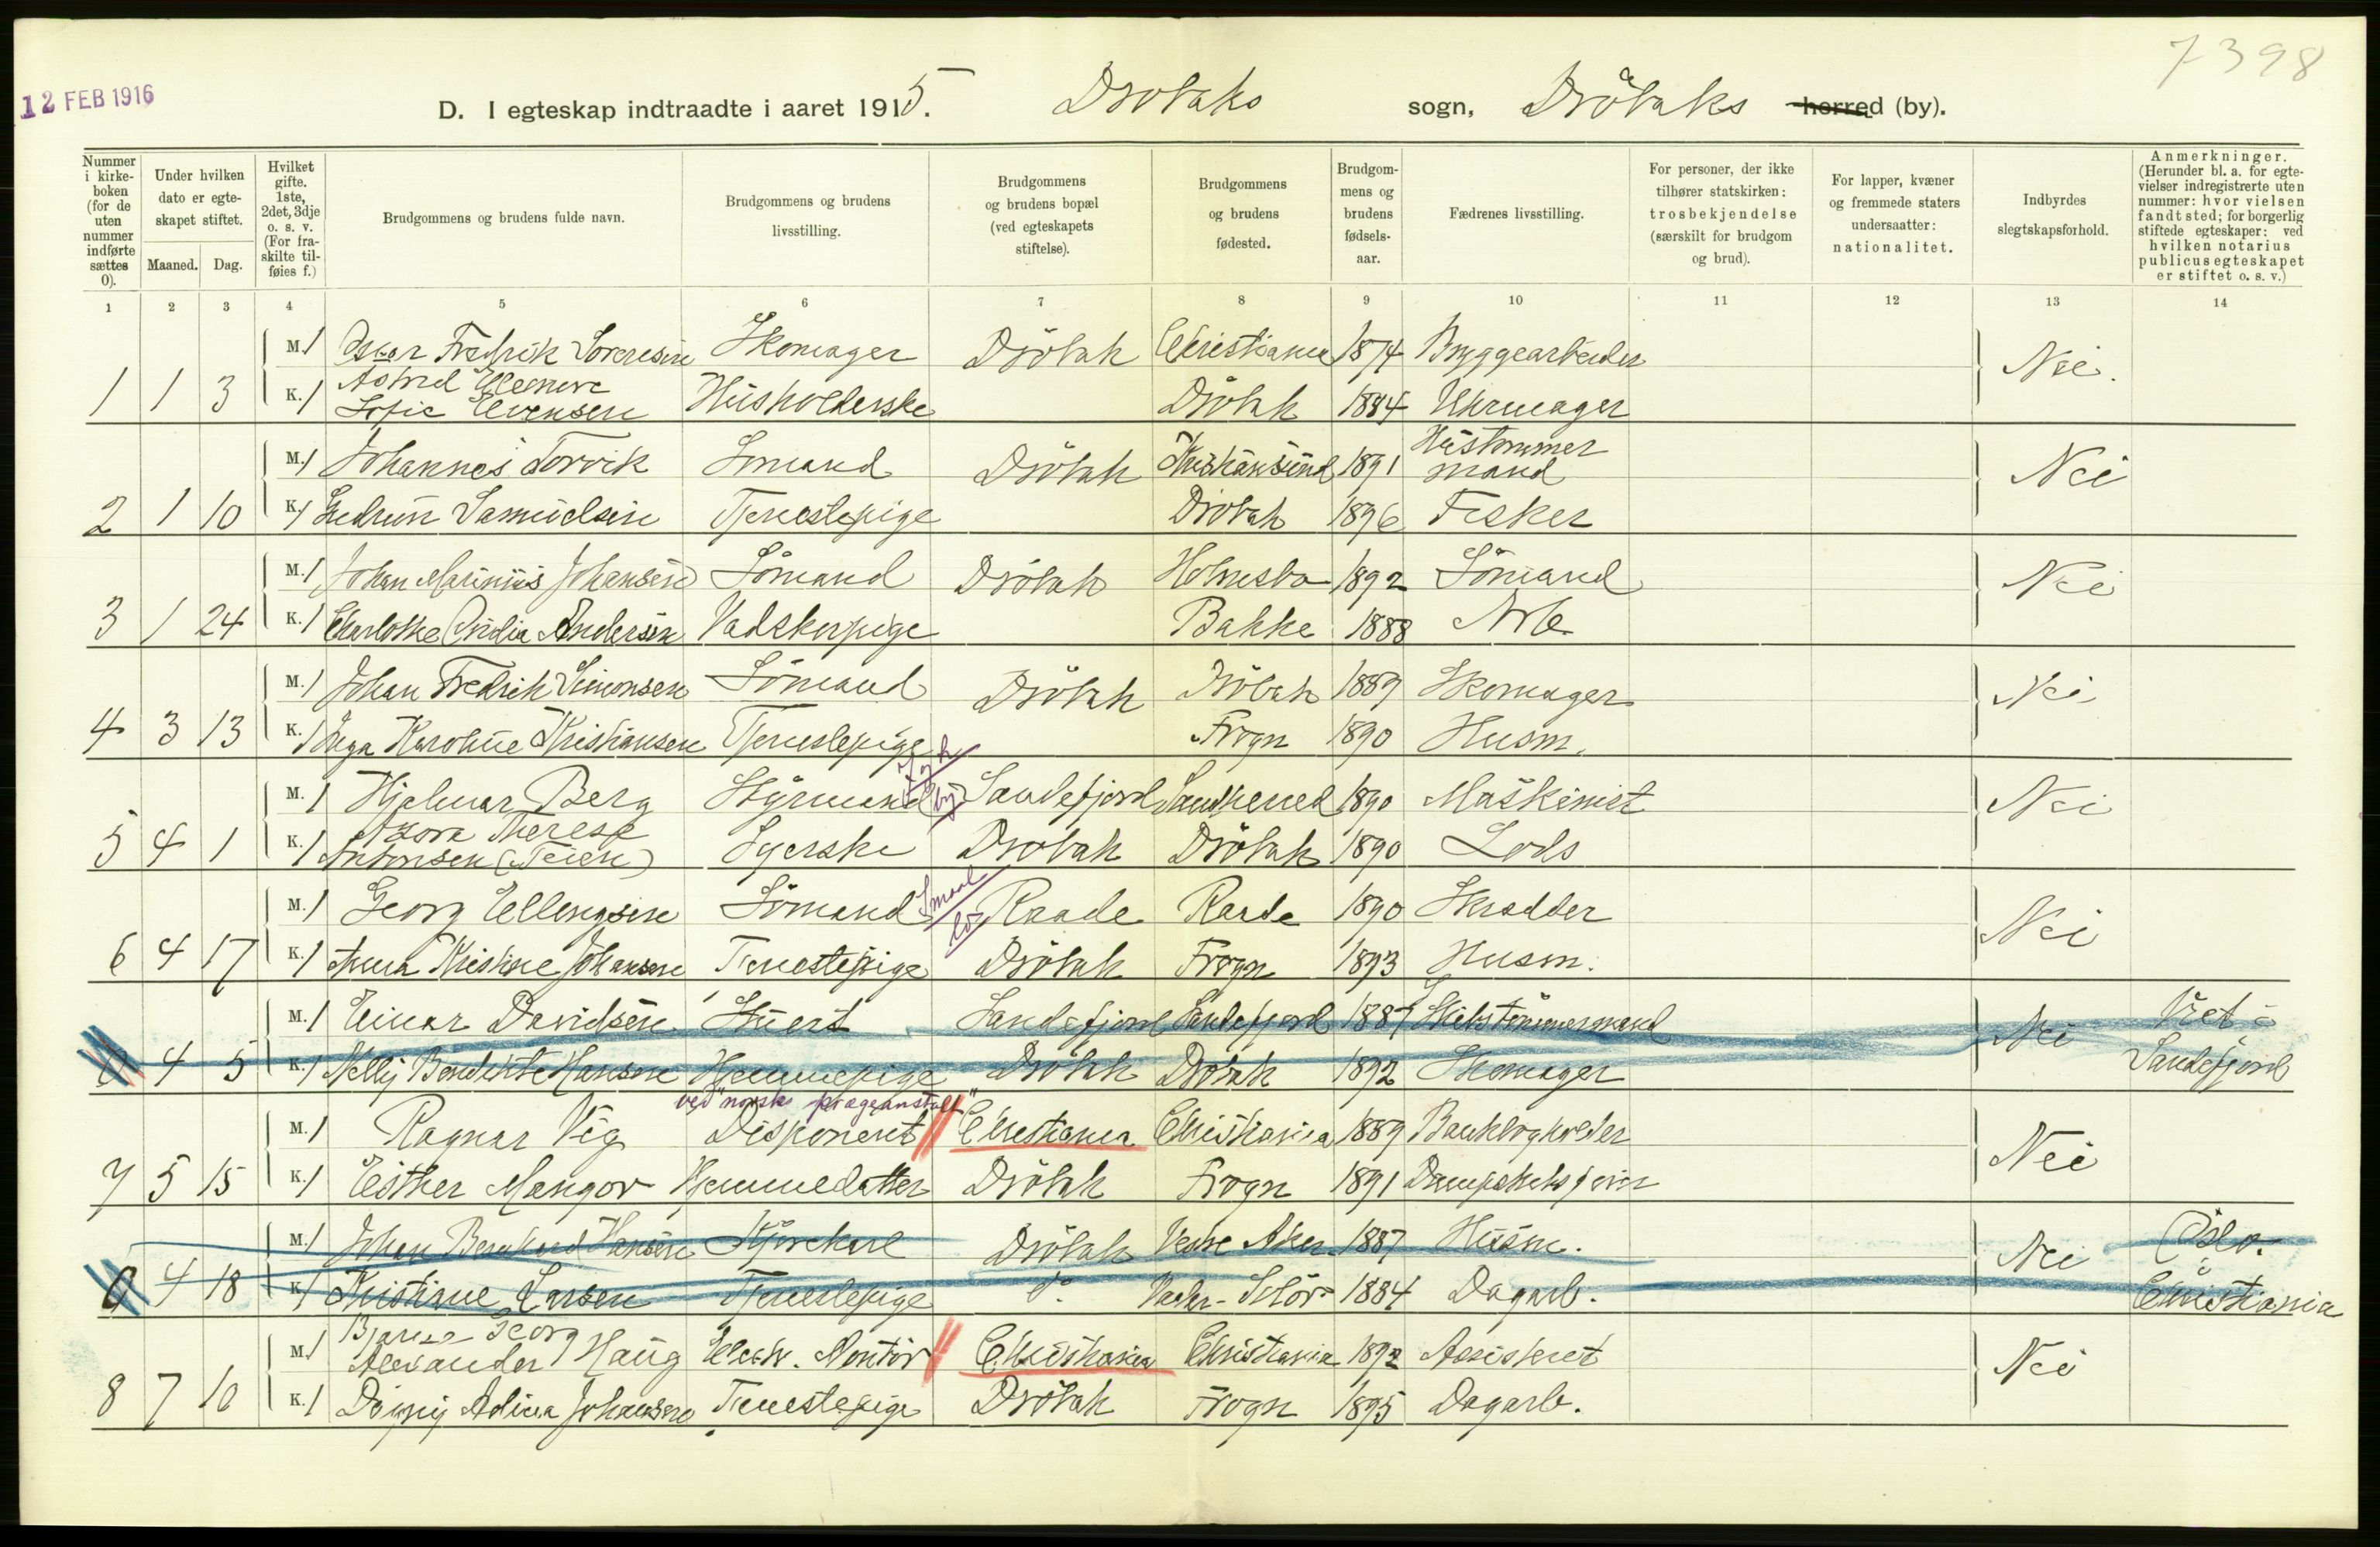 7398
12 FEB 1916
D. I egteskap indtraadte i aaret 1915. Drøbaks sogn, Drøbaks herred (by).
Nummer i kirkeboken (for de uten nummer indførte sættes 0).
Under hvilken dato er egteskapet stiftet.
Maaned. Dag.
Hvilket gifte. 1ste, 2det, 3dje o. s. v. (For fraskilte tilføies f.)
Brudgommens og brudens fulde navn.
Brudgommens og brudens livsstilling.
Brudgommens og brudens bopæl (ved egteskapets stiftelse).
Brudgommens og brudens fødested.
Brudgommens og brudens fødselsaar.
Fædrenes livsstilling.
For personer, der ikke tilhører statskirken: trosbekjendelse (særskilt for brudgom og brud).
For lapper, kvæner og fremmede staters undersaatter: nationalitet.
Indbyrdes slegtskapsforhold.
Anmerkninger. (Herunder bl. a. for egtevielser indregistrerte uten nummer: hvor vielsen fandt sted; for borgerlig stiftede egteskaper: ved hvilken notarius publicus egteskapet er stiftet o. s. v.)
1 2 3 4 5 6 7 8 9 10 11 12 13 14
M. 1 Oscar Fredrik Sørensen Skomager Drøbak Christiania 1874 Bryggearbeider Nei.
1 1 3 K. 1 Astrid Elenore
Sofie Evensen Husholderske Drøbak 1884 Uhrmager
M. 1 Johannes Torvik Sømand Drøbak Kristiansund 1891 Hustømmer
mand Nei
2 1 10 K. 1 Gudrun Samuelsen Tjenestepige Drøbak 1896 Fisker
M. 1 Johan Marinius Johansen Sømand Drøbak Holmsbo 1892 Sømand Nei
3 1 24 K. 1 Charlotte Andersen Vadskepige Bakke 1888 Arb.
M. 1 Johan Fredrik Simonsen Sømand Drøbak Drøbak 1889 Skomager Nei
4 3 13 K. 1 Inga Karoline Kristiansen Tjenestepige Frogn 1890 Husm.
M. 1 Hjalmar Berg Styrmand by Sandefjord Sandherred 1890 Maskinist Nei
5 4 1 K. 1 Thora Therese
Antonsen (Teien) Syerske Drøbak Drøbak 1890 Lods
M. 1 Georg Ellingsen Sømand Smaal Raade Raade 1890 Skrædder Nei
6 4 17 K. 1 Anna Kristine Johansen Tjenestepige Drøbak Frogn 1893 Husm.
M. 1 Einar Davidsen Stuert Sandefjord Sandefjord 1887 Skibstømmermand Nei Viet i
0 4 5 K. 1 Nelly Benedikte Hansen Hjemmepige Drøbak Drøbak 1892 Skomager Sandefjord
ved "norsk prægeanstalt"
M. 1 Ragnar Vig Disponent Christiania Christiania 1889 Bankbogholder Nei
7 5 15 K. 1 Esther Mangor Hjemmedatter Drøbak Frogn 1891 Dampskibsfører
M. 1 Johan Bernhard Hansen Kjørekarl Drøbak Vestre Aker 1887 Husm. Nei Oslo.
0 4 18 K. 1 Kristiane Larsen Tjenestepige do. Vaaler-Solør 1884 Dagarb. Christiania
M. 1 Bjarne Georg
Alexander Haug Elektr. Montør Christiania Christiania 1892 Assistent Nei
8 7 10 K. 1 Adina Johansen Tjenestepige Drøbak Frogn 1895 Dagarb.